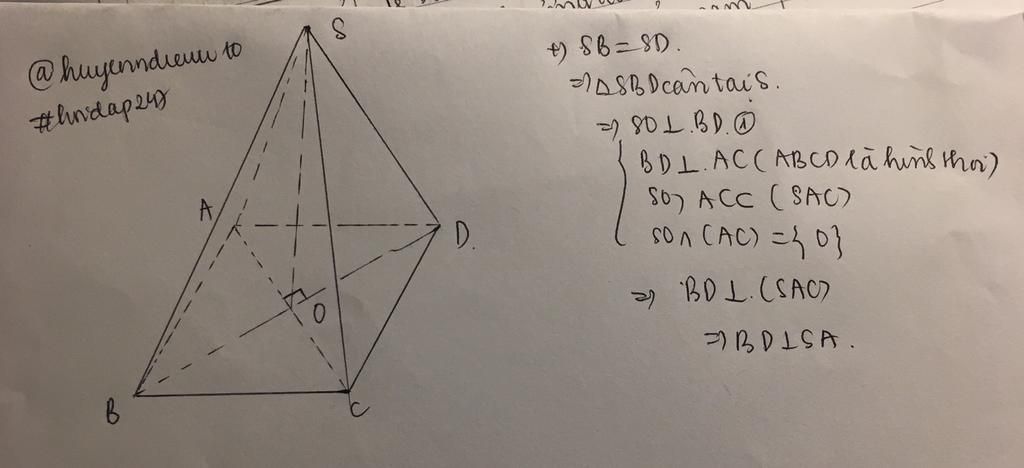 @huyenndieuuu to
#hoidap247
S
A
D.
O
B
C
+) SB = SD.
=) △SBD cân tại S.
=) SO ⊥ BD. ①
{ BD ⊥ AC (ABCD là hình thoi)
SO, AC ⊂ (SAC)
SO ∩ (AC) = { O }
=) BD ⊥ (SAC)
=) BD ⊥ SA.